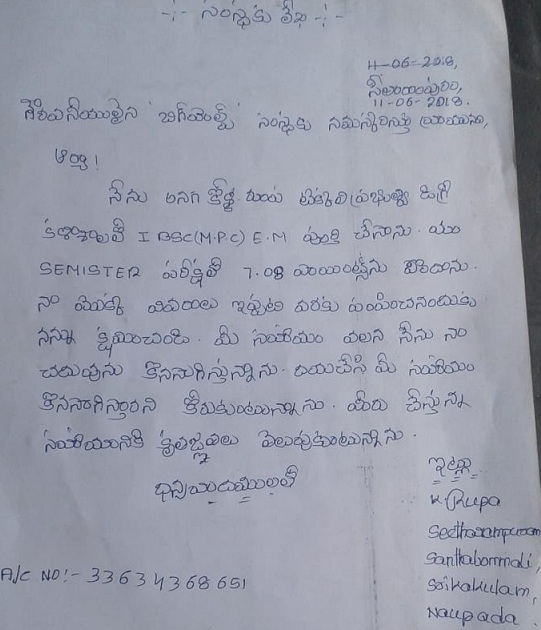 -:- సంస్థకు లేఖ -:-
11-06-2018,
సీతారాంపురం,
11-06-2018.
గౌరవనీయులైన సంస్థకు నమస్కరిస్తూ వ్రాయునది,
ఆర్యా!
నేను అనగా రూప టెక్కలి ప్రభుత్వ డిగ్రీ
కళాశాలలో I BSC(M.P.C) E.M పూర్తి చేసాను.
SEMISTER పరీక్షలో 7.08 పాయింట్స్‌ను
నా యొక్క వివరాలు ఇప్పటి వరకు పంపించనందుకు
నన్ను క్షమించండి. మీ సహాయం వలన నేను నా
చదువును కొనసాగిస్తున్నాను. దయచేసి మీ సహాయం
కొనసాగిస్తారని కోరుకుంటున్నాను. మీరు చేస్తున్న
సహాయానికి కృతజ్ఞతలు తెలుపుకుంటున్నాను.
ధన్యవాదములతో
ఇట్లు
K Rupa
Seetharampuram
Santhabommali,
Srikakulam,
Naupada.
A/C NO:- 33634368651